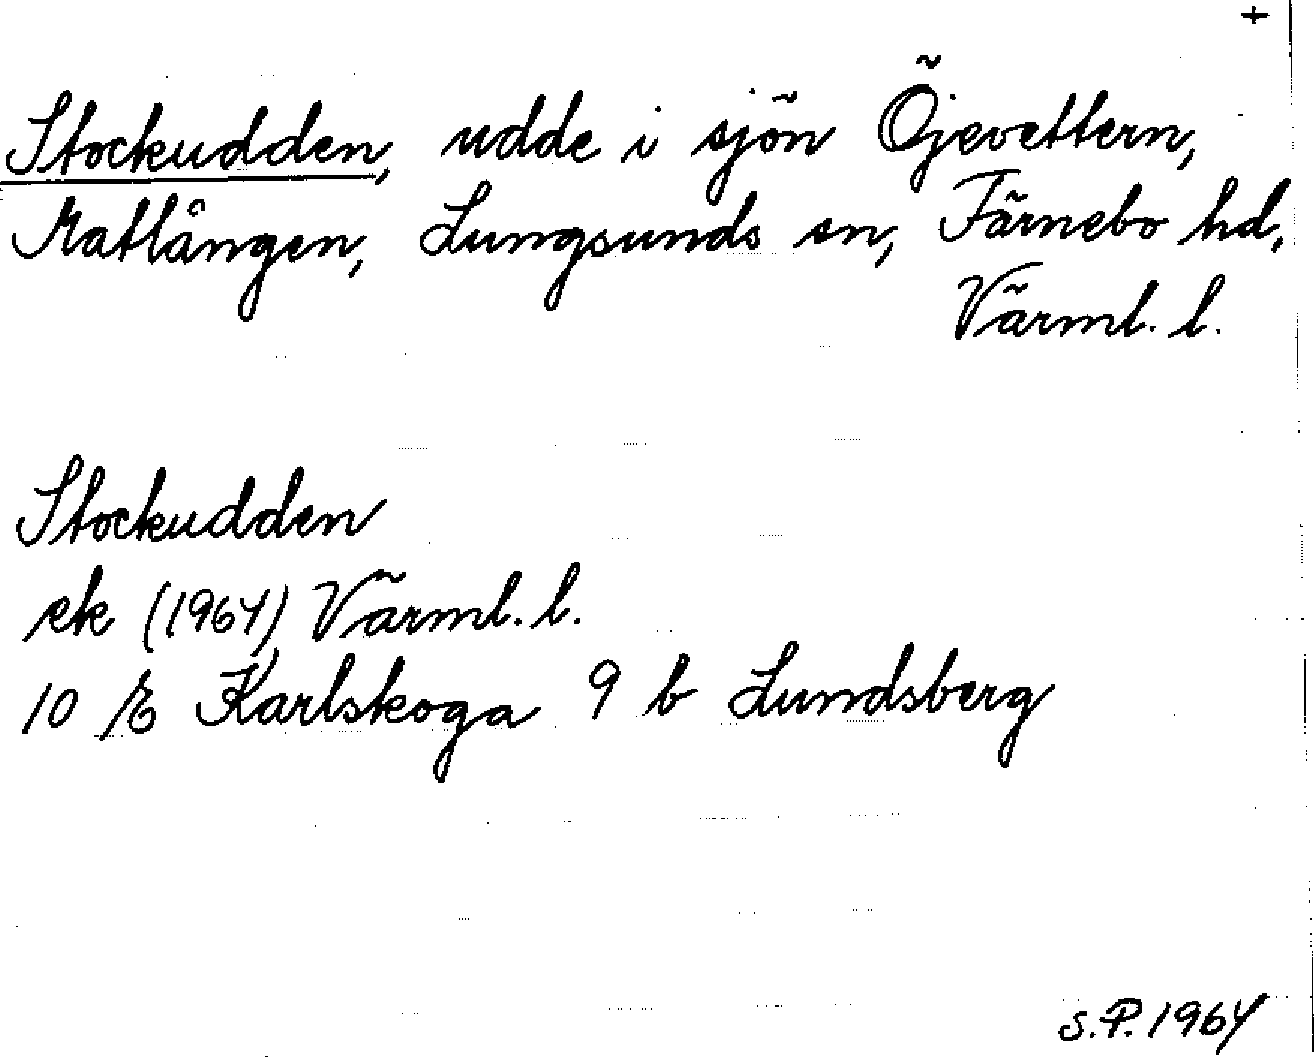 +
Stockudden, udde i sjön Öjevettern,
Matlången, Lungsunds sn, Färnebo hd,
Värml. l.
Stockudden
ek (1964) Värml. l.
10 E Karlskoga 9 b Lundsberg
S.P. 1964